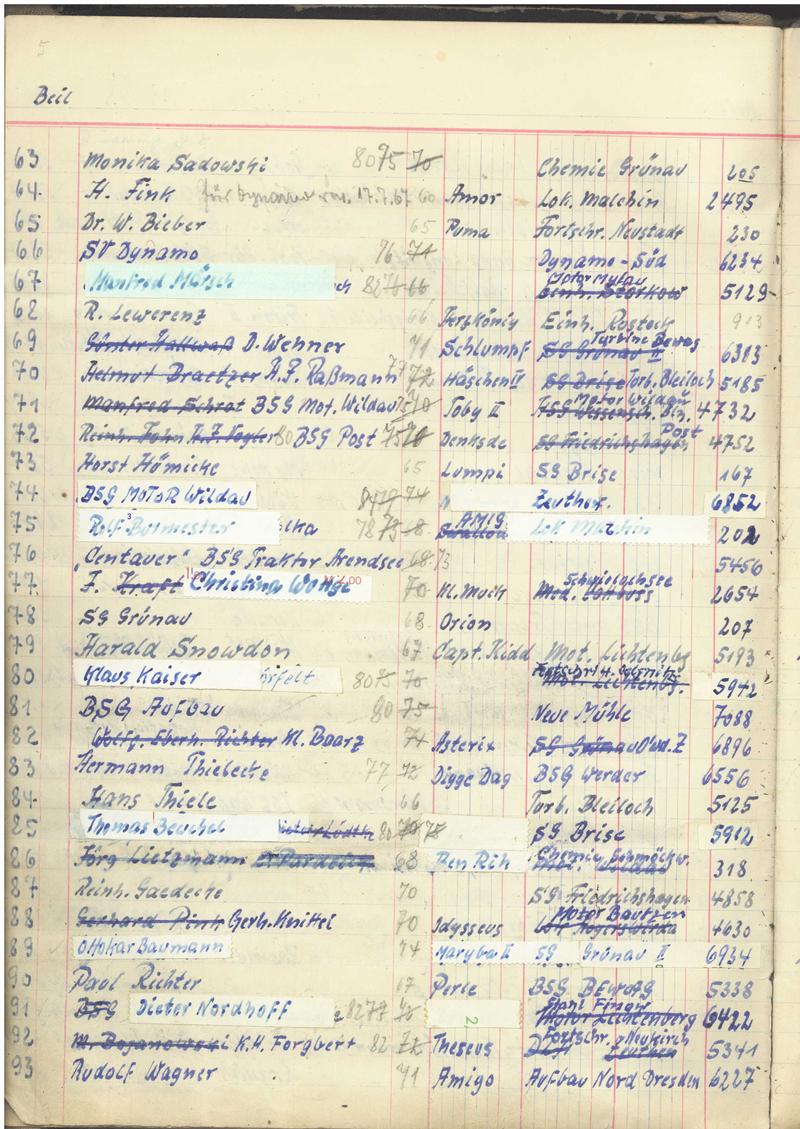 5
Beil
63 Monika Sadowski 80 75 70 Chemie Grünau 205
64 H. Fink für Dynamo 17.7.67 60 Amor Lok. Malchin 2495
65 Dr. W. Bieber 65 Puma Fortschr. Neustadt 230
66 SV Dynamo 76 74 Dynamo-Süd 6234
67 Manfred Mörsch ch 82 76 66 Motor Mylau Einh. Storkow 5129
62 R. Lewerenz 66 Einh. Rostock 913
69 Günter Hallwaß D. Wehner 71 Schlumpf SG Grünau II Turbine Bewag 6313
70 Helmut Draetzer A.P. Raßmann 77 72 Häschen II SG Brise Turb. Bleiloch 5185
71 Manfred Schrot BSG Mot. Wildau 75 70 Toby II Motor Wildau 4732
72 Reinh. Hohn 80 BSG Post 75 70 Denksde SG Friedrichshagen Post 4752
73 Horst Hömicke 65 Lumpi SG Brise 167
74 BSG MOTOR Wildau 84 79 74 Zeuthen 6852
75 Rolf Burmester lka 78 73 68 Swallow AMIG Lok Malchin 202
76 "Centaver" BSG Traktor Arendsee 68 73 5456
77 F. Kraft Christina Wonge 70 Kl. Muck Schwielochsee Med. Cottbus 2654
78 SG Grünau 68 Orion 207
79 Harald Snowdon 67 Capt. Kidd Mot. Lichtenbg 5193
80 Klaus Kaiser 80 75 70 Mot. Lichtenbg. 5942
81 BSG Aufbau 80 75 Neue Mühle 7088
82 Wolfg. Eberh. Richter Kl. Baarz 74 Asterix SG Grünau 6896
83 Hermann Thielecke 77 72 Digge Dag BSG Werder 6556
84 Hans Thiele 66 Turb. Bleiloch 5125
85 Thomas Beuchel 80 75 SG Brise 5912
86 Jörg Lietzmann 68 Ben Rih Chemie Schmöckw. 318
87 Reinh. Gaedecke 70 SG Friedrichshagen 4858
88 Gerhard Pink Gerh. Knittel 70 Idysseus Motor Bautzen 4630
89 Ottokar Baumann 74 Marybu II SG Grünau II 6934
90 Paul Richter 67 Perle BSG BEWAG 5338
91 BSG Dieter Nordhoff 82 77 Stahl Finow Motor Lichtenberg 6422
92 M. Bojanowski K.H. Forgbert 82 72 Theseus Fortschr. Neukirch Zeuthen 5341
93 Rudolf Wagner 71 Amigo Aufbau Nord Dresden 6227